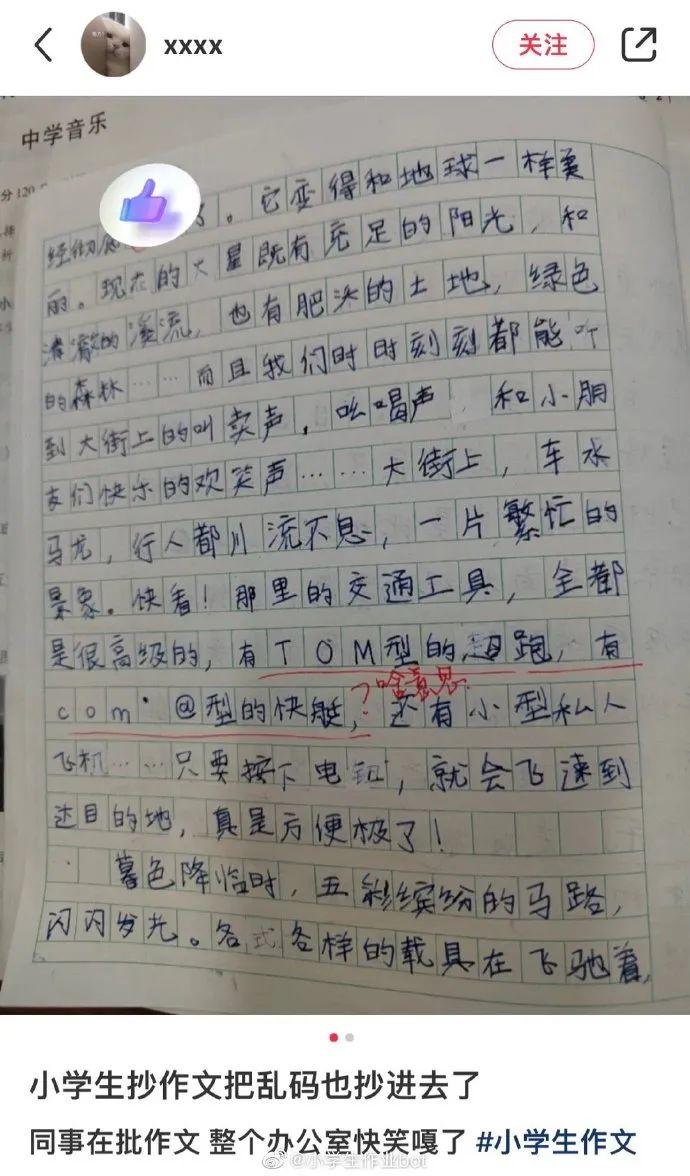 xxxx
关注
中学音乐
分120
经彻底 了。它变得和地球一样美
丽。现在的火星既有充足的阳光，和
清澈的溪流，也有肥沃的土地，绿色
的森林……而且我们时时刻刻都能听
到大街上的叫卖声，吆喝声 和小朋
友们快乐的欢笑声……大街上，车水
马龙，行人都川流不息，一片繁忙的
景象。快看！那里的交通工具，全都
是很高级的，有TOM型的超跑，有
？啥意思
com·@型的快艇，还有小型私人
飞机……只要按下电钮，就会飞速到
达目的地，真是方便极了！
暮色降临时，五彩缤纷的马路，
闪闪发光。各式各样的载具在飞驰着，
小学生抄作文把乱码也抄进去了
同事在批作文 整个办公室快笑嘎了 #小学生作文
@小学生作业bot